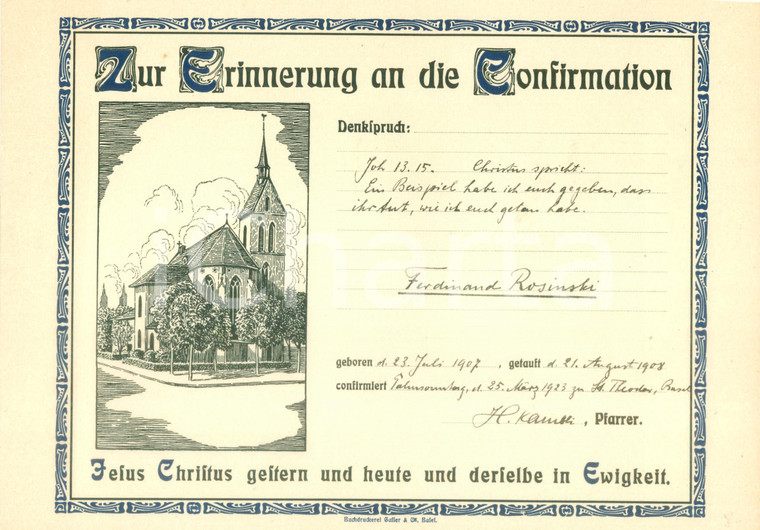 Zur Erinnerung an die Confirmation
Denkſpruch:
Joh 13.15. Christus spricht:
Ein Beispiel habe ich euch gegeben, dass
ihr tut, wie ich euch getan habe.
Ferdinand Rosinski
geboren d. 23. Juli 1907, getauft d. 21. August 1908
confirmiert Palmsonntag, d. 25. März 1923 zu St. Theodor, Basel
H. Kambli, Pfarrer.
Jeſus Chriſtus geſtern und heute und derſelbe in Ewigkeit.
Buchdruckerei Gaſſer & Baſel.